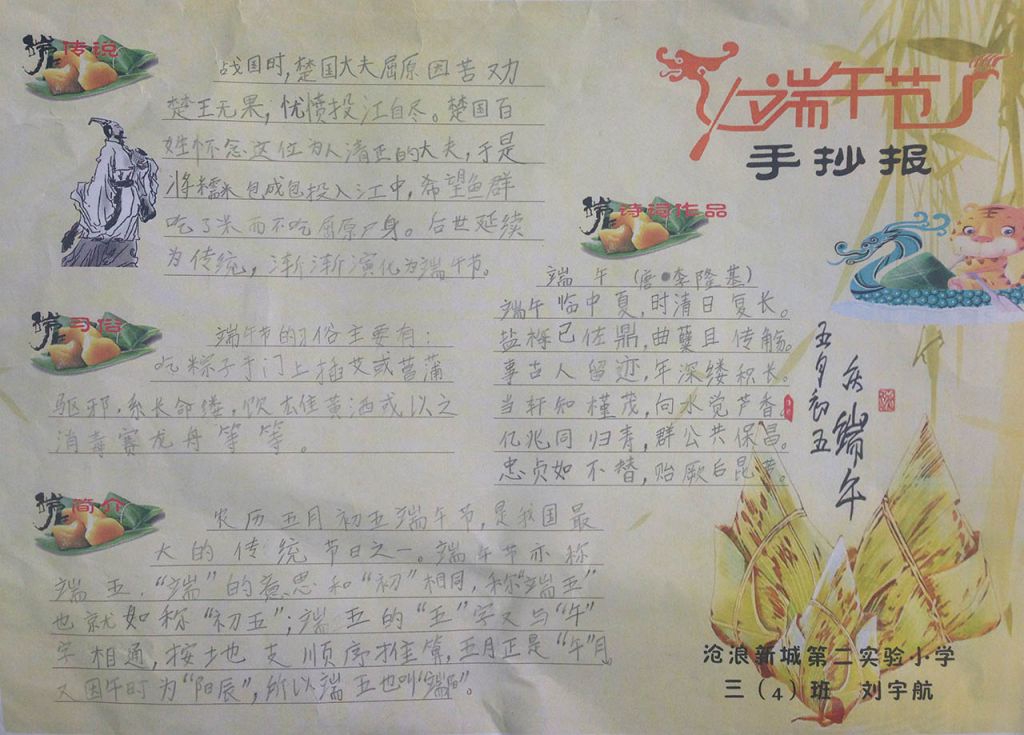 端午节
手抄报
传说
战国时,楚国大夫屈原因苦劝
楚王无果,忧愤投江自尽。楚国百
姓怀念这位为人清正的大夫,于是
将糯米包成包投入江中,希望鱼群
吃了米而不吃屈原尸身。后世延续
为传统,渐渐演化为端午节。
习俗
端午节的习俗主要有:
吃粽子于门上插艾或菖蒲
驱邪,系长命缕,饮雄黄酒或以之
消毒赛龙舟等等。
简介
农历五月初五端午节,是我国最
大的传统节日之一。端午节亦称
端五,“端”的意思和“初”相同,称“端五”
也就如称“初五”;端五的“五”字又与“午”
字相通,按地支顺序推算,五月正是“午”月。
又因午时为“阳辰”,所以端五也叫“端阳”。
诗词作品
端午(唐●李隆基)
端午临中夏,时清日复长。
盐梅已佐鼎,曲蘖且传觞。
事古人留迹,年深缕积长。
当轩知槿茂,向水觉芦香。
亿兆同归寿,群公共保昌。
忠贞如不替,贻厥后昆芳。
五月初五
庆端午
沧浪新城第二实验小学
三(4)班 刘宇航